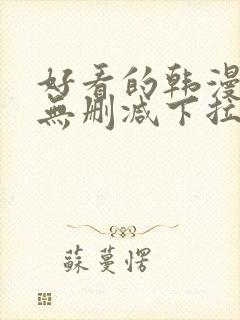 好看的韩漫
無删减下拉
蘇蔓愣